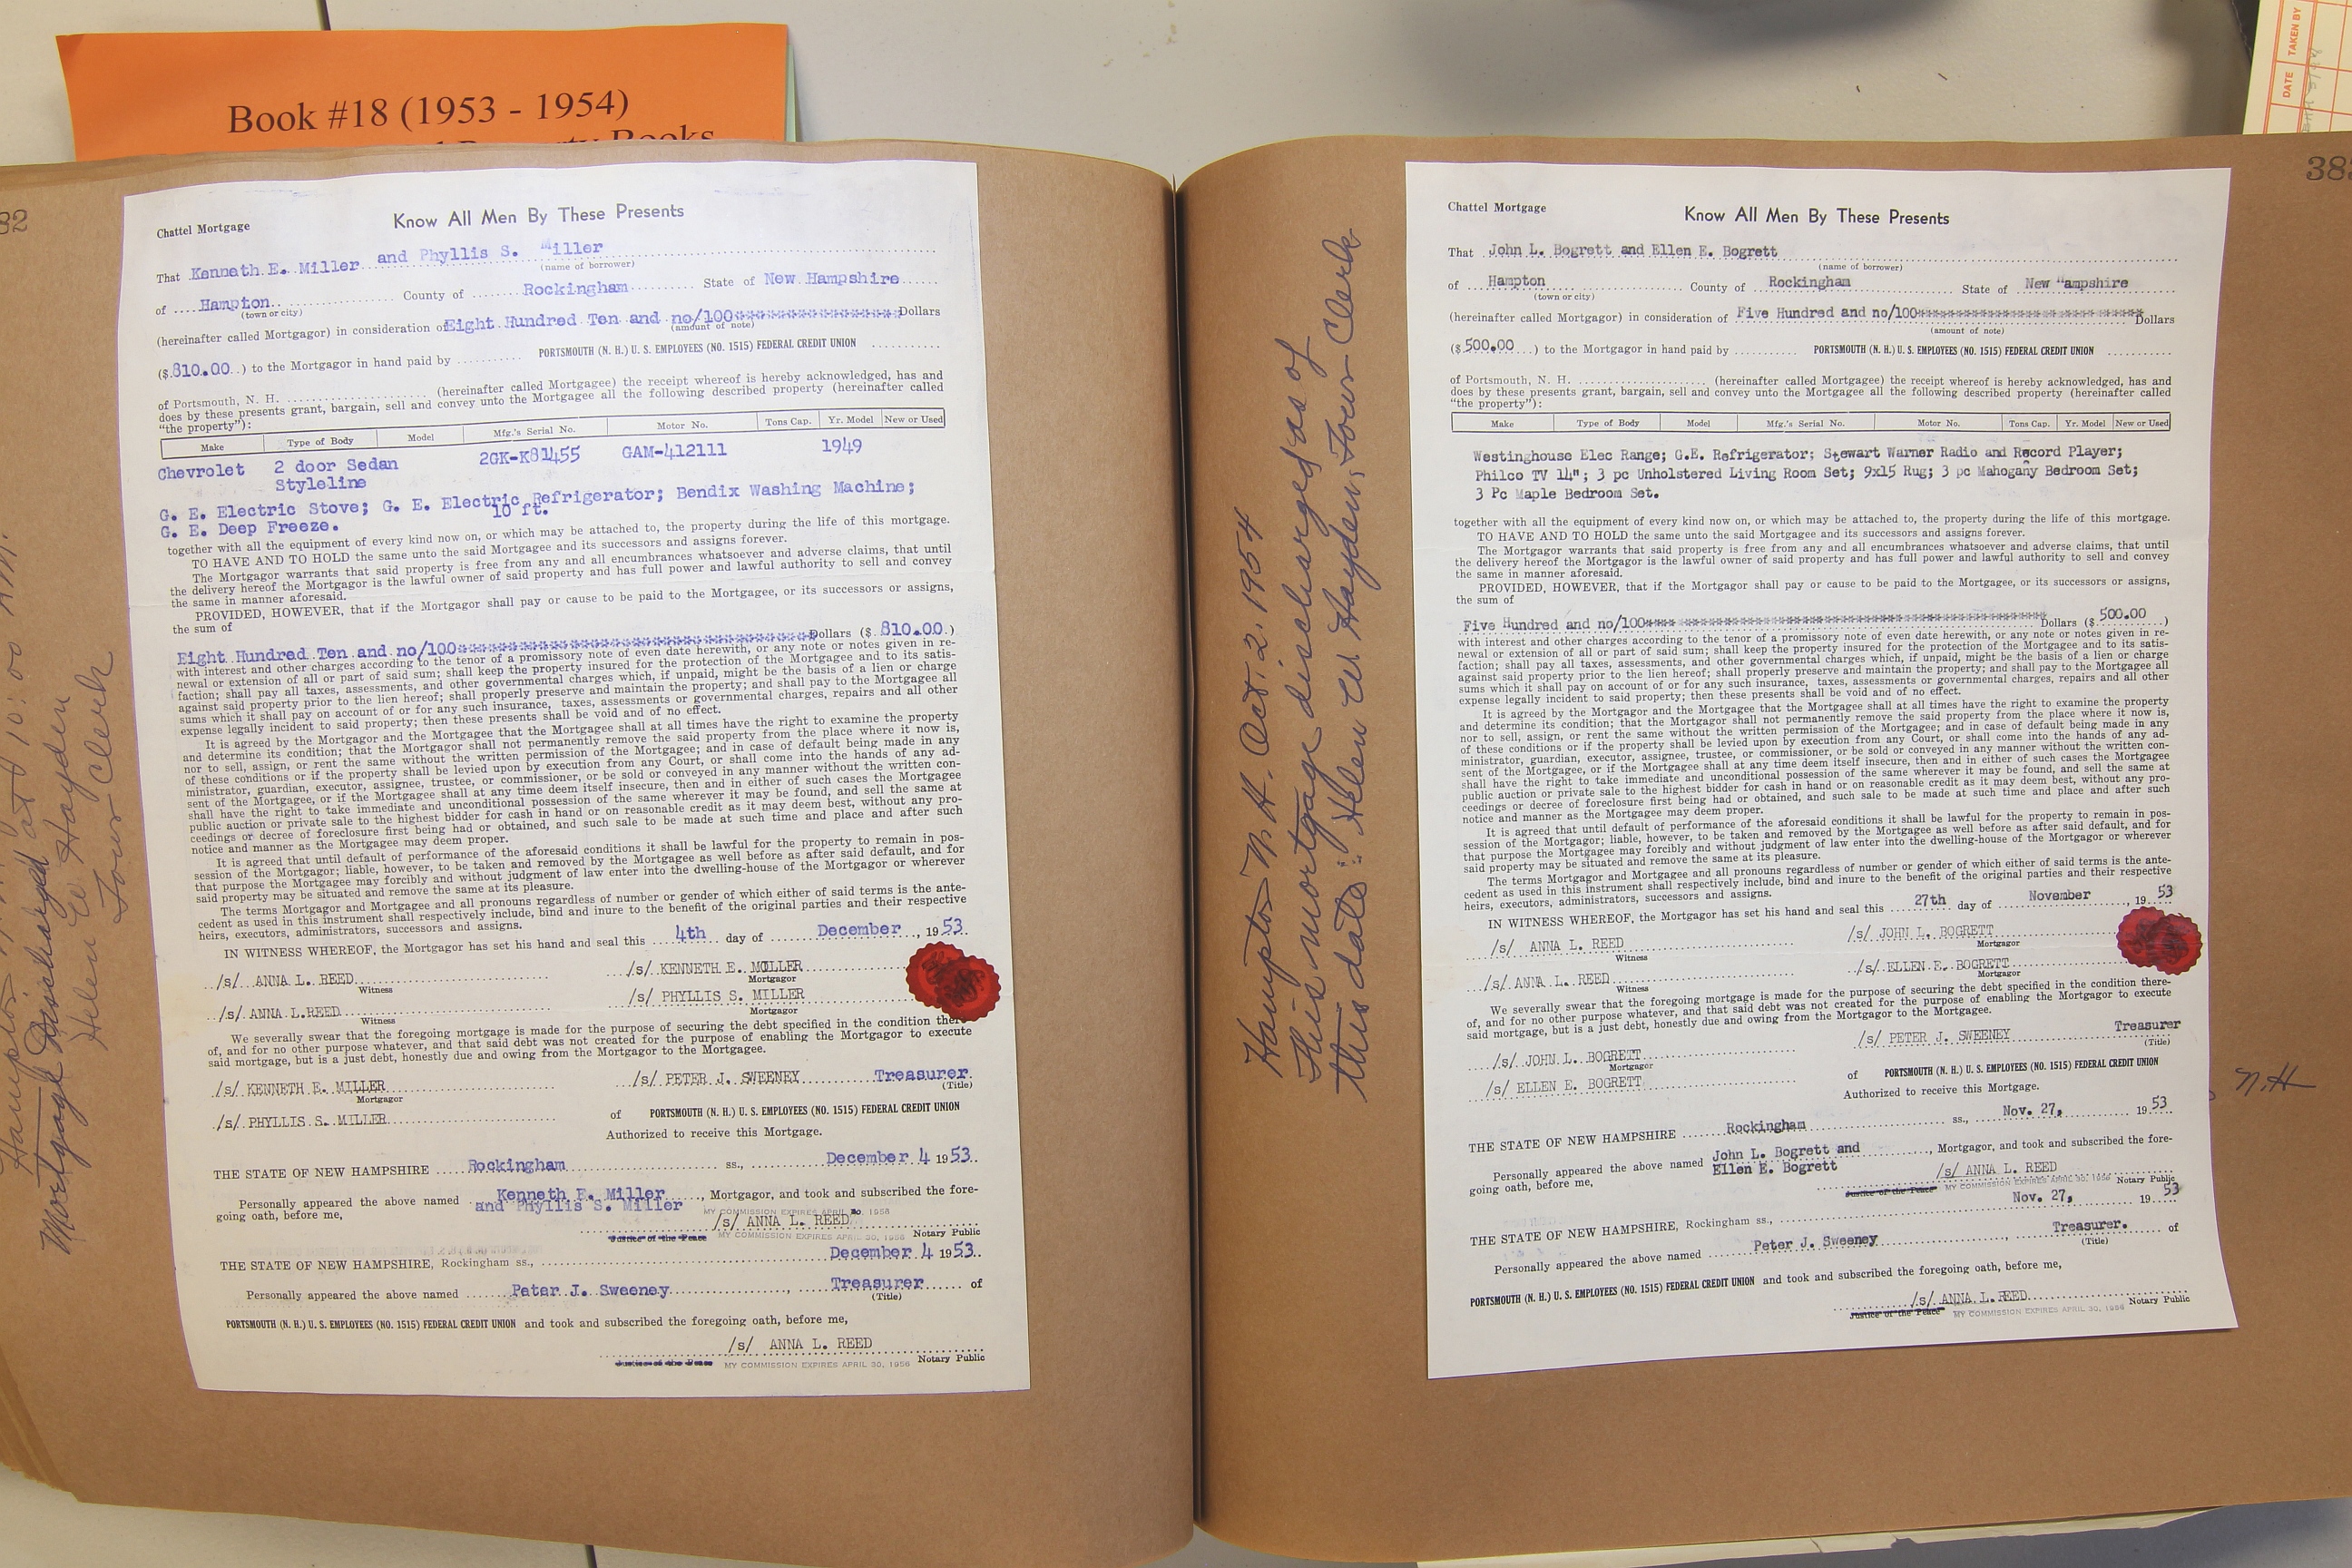 Book #18 (1953 - 1954)
Books
DATE TAKEN BY
82
Chattel Mortgage
Know All Men By These Presents
That Kenneth E. Miller and Phyllis S. Miller
(name of borrower)
of Hampton County of Rockingham State of New Hampshire
(town or city)
(hereinafter called Mortgagor) in consideration of Eight Hundred Ten and no/100************************Dollars
(amount of note)
($ 810.00 ) to the Mortgagor in hand paid by PORTSMOUTH (N. H.) U. S. EMPLOYEES (NO. 1515) FEDERAL CREDIT UNION
of Portsmouth, N. H. (hereinafter called Mortgagee) the receipt whereof is hereby acknowledged, has and
does by these presents grant, bargain, sell and convey unto the Mortgagee all the following described property (hereinafter called
"the property"):
Make Type of Body Model Mfg.'s Serial No. Motor No. Tons Cap. Yr. Model New or Used
Chevrolet 2 door Sedan 2GK-K81455 GAM-412111 1949
Styleline
G. E. Electric Stove; G. E. Electric Refrigerator; Bendix Washing Machine;
10 ft.
G. E. Deep Freeze.
together with all the equipment of every kind now on, or which may be attached to, the property during the life of this mortgage.
TO HAVE AND TO HOLD the same unto the said Mortgagee and its successors and assigns forever.
The Mortgagor warrants that said property is free from any and all encumbrances whatsoever and adverse claims, that until
the delivery hereof the Mortgagor is the lawful owner of said property and has full power and lawful authority to sell and convey
the same in manner aforesaid.
PROVIDED, HOWEVER, that if the Mortgagor shall pay or cause to be paid to the Mortgagee, or its successors or assigns,
the sum of
Eight Hundred Ten and no/100************************************************Dollars ($ 810.00 )
with interest and other charges according to the tenor of a promissory note of even date herewith, or any note or notes given in re-
newal or extension of all or part of said sum; shall keep the property insured for the protection of the Mortgagee and to its satis-
faction; shall pay all taxes, assessments, and other governmental charges which, if unpaid, might be the basis of a lien or charge
against said property prior to the lien hereof; shall properly preserve and maintain the property; and shall pay to the Mortgagee all
sums which it shall pay on account of or for any such insurance, taxes, assessments or governmental charges, repairs and all other
expense legally incident to said property; then these presents shall be void and of no effect.
It is agreed by the Mortgagor and the Mortgagee that the Mortgagee shall at all times have the right to examine the property
and determine its condition; that the Mortgagor shall not permanently remove the said property from the place where it now is,
nor to sell, assign, or rent the same without the written permission of the Mortgagee; and in case of default being made in any
of these conditions or if the property shall be levied upon by execution from any Court, or shall come into the hands of any ad-
ministrator, guardian, executor, assignee, trustee, or commissioner, or be sold or conveyed in any manner without the written con-
sent of the Mortgagee, or if the Mortgagee shall at any time deem itself insecure, then and in either of such cases the Mortgagee
shall have the right to take immediate and unconditional possession of the same wherever it may be found, and sell the same at
public auction or private sale to the highest bidder for cash in hand or on reasonable credit as it may deem best, without any pro-
ceedings or decree of foreclosure first being had or obtained, and such sale to be made at such time and place and after such
notice and manner as the Mortgagee may deem proper.
It is agreed that until default of performance of the aforesaid conditions it shall be lawful for the property to remain in pos-
session of the Mortgagor; liable, however, to be taken and removed by the Mortgagee as well before as after said default, and for
that purpose the Mortgagee may forcibly and without judgment of law enter into the dwelling-house of the Mortgagor or wherever
said property may be situated and remove the same at its pleasure.
The terms Mortgagor and Mortgagee and all pronouns regardless of number or gender of which either of said terms is the ante-
cedent as used in this instrument shall respectively include, bind and inure to the benefit of the original parties and their respective
heirs, executors, administrators, successors and assigns.
IN WITNESS WHEREOF, the Mortgagor has set his hand and seal this 4th day of December, 19 53.
/s/ ANNA L. REED /s/ KENNETH E. MOLLER
Witness Mortgagor
/s/ ANNA L.REED /s/ PHYLLIS S. MILLER
Witness Mortgagor
We severally swear that the foregoing mortgage is made for the purpose of securing the debt specified in the condition there-
of, and for no other purpose whatever, and that said debt was not created for the purpose of enabling the Mortgagor to execute
said mortgage, but is a just debt, honestly due and owing from the Mortgagor to the Mortgagee.
/s/ KENNETH E. MILLER /s/ PETER J. SWEENEY Treasurer
Mortgagor (Title)
/s/ PHYLLIS S. MILLER of PORTSMOUTH (N. H.) U. S. EMPLOYEES (NO. 1515) FEDERAL CREDIT UNION
Authorized to receive this Mortgage.
THE STATE OF NEW HAMPSHIRE Rockingham ss., December 4 19 53.
Personally appeared the above named Kenneth E. Miller, Mortgagor, and took and subscribed the fore-
and Phyllis S. Miller
going oath, before me, /s/ ANNA L. REED
Justice of the Peace MY COMMISSION EXPIRES APRIL 30, 1956 Notary Public
THE STATE OF NEW HAMPSHIRE, Rockingham ss., December 4 19 53.
Personally appeared the above named Peter J. Sweeney, Treasurer of
(Title)
PORTSMOUTH (N. H.) U. S. EMPLOYEES (NO. 1515) FEDERAL CREDIT UNION and took and subscribed the foregoing oath, before me,
/s/ ANNA L. REED
Justice of the Peace MY COMMISSION EXPIRES APRIL 30, 1956 Notary Public
Mortgage Discharged at 10:00 A.M.
Helen W. Hayden
Town Clerk
Hampton N.H. Oct. 2, 1954
This mortgage discharged as of
this date: Helen W. Hayden, Town Clerk
N.H
Chattel Mortgage
Know All Men By These Presents
That John L. Bogrett and Ellen E. Bogrett
(name of borrower)
of Hampton County of Rockingham State of New "ampshire
(town or city)
(hereinafter called Mortgagor) in consideration of Five Hundred and no/100********************************Dollars
(amount of note)
($ 500.00 ) to the Mortgagor in hand paid by PORTSMOUTH (N. H.) U. S. EMPLOYEES (NO. 1515) FEDERAL CREDIT UNION
of Portsmouth, N. H. (hereinafter called Mortgagee) the receipt whereof is hereby acknowledged, has and
does by these presents grant, bargain, sell and convey unto the Mortgagee all the following described property (hereinafter called
"the property"):
Make Type of Body Model Mfg.'s Serial No. Motor No. Tons Cap. Yr. Model New or Used
Westinghouse Elec Range; G.E. Refrigerator; Stewart Warner Radio and Record Player;
Philco TV 14"; 3 pc Unholstered Living Room Set; 9x15 Rug; 3 pc Mahogany Bedroom Set;
3 Pc Maple Bedroom Set.
together with all the equipment of every kind now on, or which may be attached to, the property during the life of this mortgage.
TO HAVE AND TO HOLD the same unto the said Mortgagee and its successors and assigns forever.
The Mortgagor warrants that said property is free from any and all encumbrances whatsoever and adverse claims, that until
the delivery hereof the Mortgagor is the lawful owner of said property and has full power and lawful authority to sell and convey
the same in manner aforesaid.
PROVIDED, HOWEVER, that if the Mortgagor shall pay or cause to be paid to the Mortgagee, or its successors or assigns,
the sum of
Five Hundred and no/100****************************************************Dollars ($ 500.00 )
with interest and other charges according to the tenor of a promissory note of even date herewith, or any note or notes given in re-
newal or extension of all or part of said sum; shall keep the property insured for the protection of the Mortgagee and to its satis-
faction; shall pay all taxes, assessments, and other governmental charges which, if unpaid, might be the basis of a lien or charge
against said property prior to the lien hereof; shall properly preserve and maintain the property; and shall pay to the Mortgagee all
sums which it shall pay on account of or for any such insurance, taxes, assessments or governmental charges, repairs and all other
expense legally incident to said property; then these presents shall be void and of no effect.
It is agreed by the Mortgagor and the Mortgagee that the Mortgagee shall at all times have the right to examine the property
and determine its condition; that the Mortgagor shall not permanently remove the said property from the place where it now is,
nor to sell, assign, or rent the same without the written permission of the Mortgagee; and in case of default being made in any
of these conditions or if the property shall be levied upon by execution from any Court, or shall come into the hands of any ad-
ministrator, guardian, executor, assignee, trustee, or commissioner, or be sold or conveyed in any manner without the written con-
sent of the Mortgagee, or if the Mortgagee shall at any time deem itself insecure, then and in either of such cases the Mortgagee
shall have the right to take immediate and unconditional possession of the same wherever it may be found, and sell the same at
public auction or private sale to the highest bidder for cash in hand or on reasonable credit as it may deem best, without any pro-
ceedings or decree of foreclosure first being had or obtained, and such sale to be made at such time and place and after such
notice and manner as the Mortgagee may deem proper.
It is agreed that until default of performance of the aforesaid conditions it shall be lawful for the property to remain in pos-
session of the Mortgagor; liable, however, to be taken and removed by the Mortgagee as well before as after said default, and for
that purpose the Mortgagee may forcibly and without judgment of law enter into the dwelling-house of the Mortgagor or wherever
said property may be situated and remove the same at its pleasure.
The terms Mortgagor and Mortgagee and all pronouns regardless of number or gender of which either of said terms is the ante-
cedent as used in this instrument shall respectively include, bind and inure to the benefit of the original parties and their respective
heirs, executors, administrators, successors and assigns.
IN WITNESS WHEREOF, the Mortgagor has set his hand and seal this 27th day of November, 19 53
/s/ ANNA L. REED /s/ JOHN L. BOGRETT
Witness Mortgagor
/s/ ANNA L. REED /s/ ELLEN E. BOGRETT
Witness Mortgagor
We severally swear that the foregoing mortgage is made for the purpose of securing the debt specified in the condition there-
of, and for no other purpose whatever, and that said debt was not created for the purpose of enabling the Mortgagor to execute
said mortgage, but is a just debt, honestly due and owing from the Mortgagor to the Mortgagee.
/s/ JOHN L. BOGRETT /s/ PETER J. SWEENEY Treasurer
Mortgagor (Title)
/s/ ELLEN E. BOGRETT of PORTSMOUTH (N. H.) U. S. EMPLOYEES (NO. 1515) FEDERAL CREDIT UNION
Authorized to receive this Mortgage.
THE STATE OF NEW HAMPSHIRE Rockingham ss., Nov. 27, 19 53
Personally appeared the above named John L. Bogrett and, Mortgagor, and took and subscribed the fore-
Ellen E. Bogrett
going oath, before me, /s/ ANNA L. REED
Justice of the Peace MY COMMISSION EXPIRES APRIL 30, 1956 Notary Public
THE STATE OF NEW HAMPSHIRE, Rockingham ss., Nov. 27, 19 53
Personally appeared the above named Peter J. Sweeney, Treasurer. of
(Title)
PORTSMOUTH (N. H.) U. S. EMPLOYEES (NO. 1515) FEDERAL CREDIT UNION and took and subscribed the foregoing oath, before me,
/s/ ANNA L. REED
Justice of the Peace MY COMMISSION EXPIRES APRIL 30, 1956 Notary Public